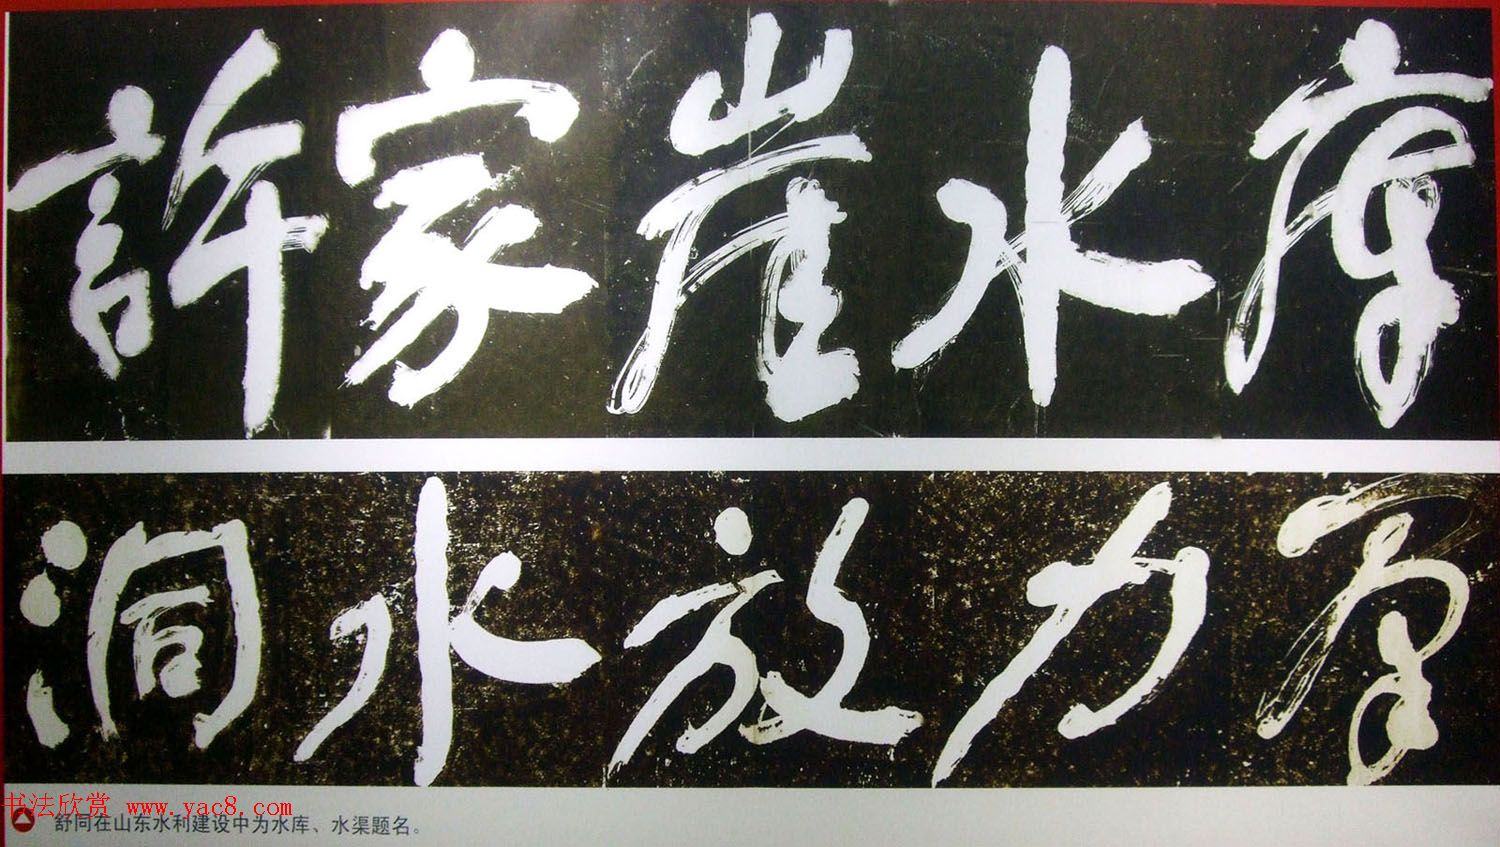 許家崖水庫
力放水洞
书法欣赏 www.yac8.com
舒同在山东水利建设中为水库、水渠题名。